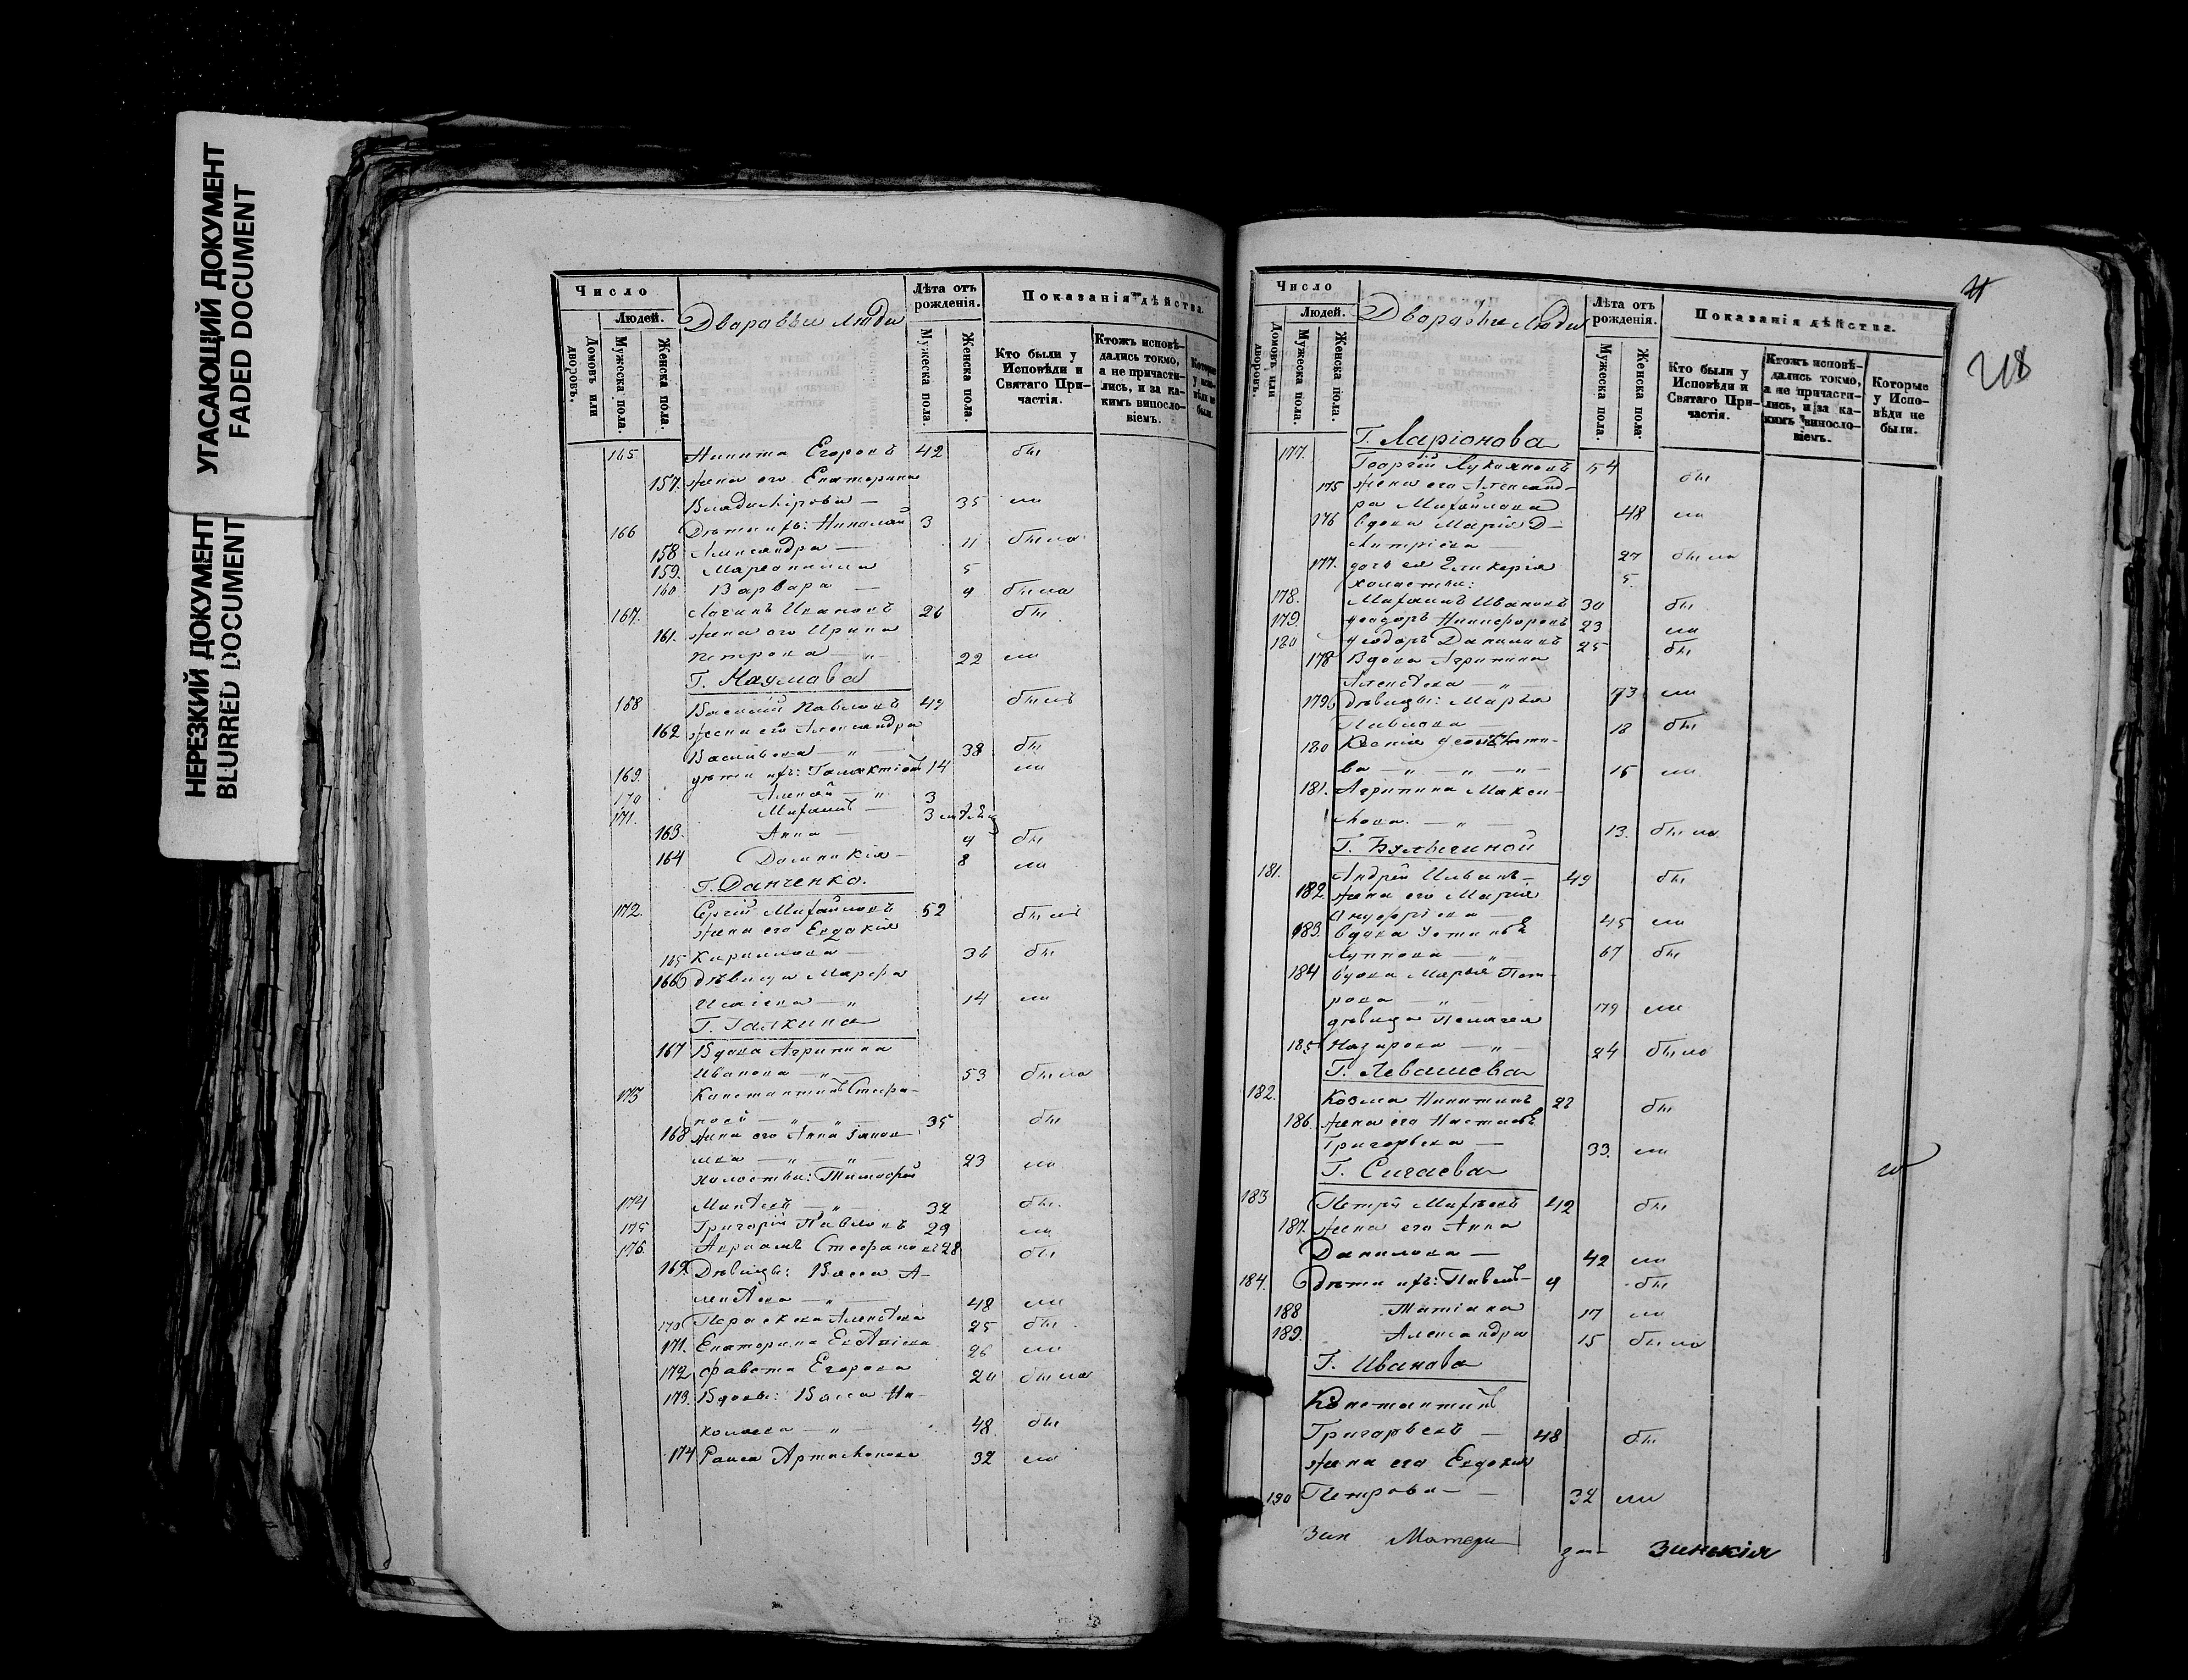 УГАСАЮЩИЙ ДОКУМЕНТ
FADED DOCUMENT
НЕРЕЗКИЙ ДОКУМЕНТ
BLURRED DOCUMENT
Число
Людей.
Домовъ или дворовъ.
Мужеска пола.
Женска пола.
Дваравыи люди
Лѣта отъ рожденія.
Мужеска пола.
Женска пола.
Показанія дѣйства.
Кто были у Исповѣди и Святаго Причастія.
Ктожъ исповѣдались токмо, а не причастились, и за какимъ винословіемъ.
165 Никита Егоровъ 42 бы
157. жена его Екатерина
Владимірова — 35 ли
166 Дѣти ихъ: Николай 3
158 Александра — 11 была
159. 5
160 Варвара — 9 была
167. Ивановъ 26 бы
161. жена его Ирина
Петрова — „ — 22 ли
Г. Наумова
168 Василій Павловъ 49 былъ
162 жена его Александра
Васильева — „ — 38 бы
169. дѣти ихъ: Галактіонъ 14 ли
170 Алексѣй — „ 3
171. Михаилъ — 3
163. Анна — 9 бы
164 Домникія — 8 ли
Г. Данченко.
172. Сергій Михайловъ 52 былъ
жена его Евдокія
165 Кириллова — 36 бы
166 дѣвица Марфа
— „ 14 ли
Г. Галкина
167 Вдова Агрипина
Иванова — „ — 53 была
173 Константинъ Стефа-
новъ — „ — „ — 35 бы
168 жена его Анна
— „ — „ — 23 ли
холостые: Тимофей
174 — „ — 32 бы.
175 Григорій Павловъ 29 ли
176. Авраамъ Стефановъ 28 бы
169. Дѣвицы: Васса А-
лексѣева — „ — 48 ли
170 Параскева Алексѣева 25 бы
171. Екатерина 26 ли
172 Егорова 20 была
173. Вдовы: Васса Ни-
колаева — „ — 48 бы
174 Раиса Артамонова 32 ли
Число
Людей.
Домовъ или дворовъ.
Мужеска пола.
Женска пола.
Дваравые люди
Лѣта отъ рожденія.
Мужеска пола.
Женска пола.
Показанія дѣйства.
Кто были у Исповѣди и Святаго Причастія.
Ктожъ исповѣдались токмо, а не причастились, и за какимъ винословіемъ.
Которые у Исповѣди не были.
218
Г. Ларіонова
177. Георгій Лукьяновъ 54 бы
175 жена его Александ-
ра Михайлова 48 ли
176 вдова Марія Д-
митріева — 27 была
177. дочь ея Гликерія 5
холостые:
178. Михаилъ Ивановъ 30 бы
179. Никифоровъ 23 ли
180 Ѳеодоръ Даниловъ 25 бы
178 Вдова Агрипина
Алексѣева — „ — 73 ли
179 дѣвицы: Марья
Павлова — 18 бы
180 Ксенія
ва — „ — „ — „ — 15 ли
181. Агрипина Макси-
мова. — „ — 13. была
Г. Булыгиной
181. Андрей 49 бы
182. жена его Марія
Ануфріева — 45 ли
183. вдова Устинья
Луппова — „ — 67 бы
184 вдова Марья Пет-
рова — „ — 179 ли
дѣвица Пелагея
185 Назарова — „ — 24 была
Г. Левашева
182. Козма Никитинъ 28 бы
186. жена его Настасья
Григорьева — 33. ли
Г. Сигаева
183 Петръ 42 бы
187. жена его Анна
Данилова — 42 ли
184. Дѣти ихъ: Павелъ — 9 бы
188 Татіана 17 ли
189. Александра 15 была
Г. Иванова
Константинъ
Григорьевъ — 48 бы
жена его Евдокія
190 Петрова — 32 ли